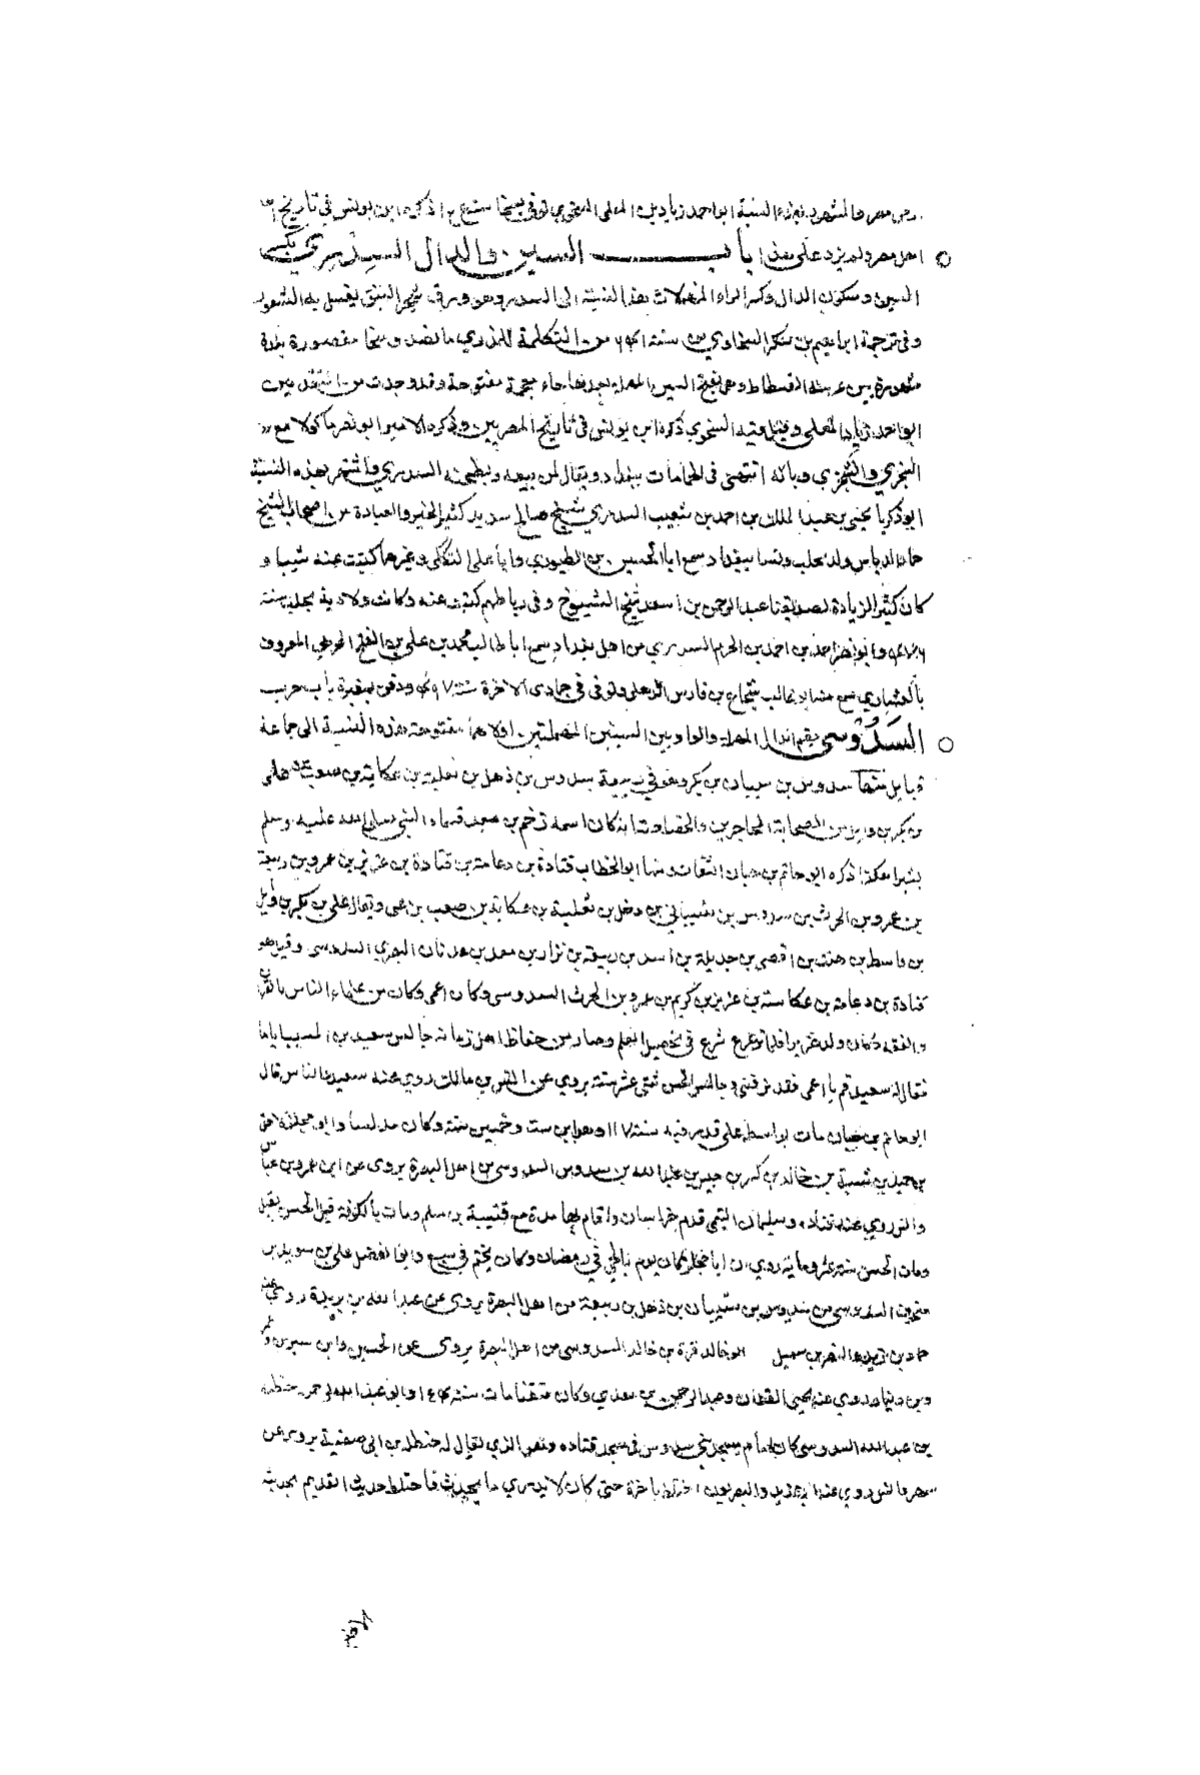 من مصر والمشهور بهذه النسبة ابو احمد زياد بن المعلى السخوي توفي بسخا سنة ذكره ابن يونس في تاريخ
اهل مصر ولم يزد على هذا باب السين والدال السِدْري بكسر
السين وسكون الدال وكسر الراء المهملات هذه النسبة الى السدر وهو ورق شجر النبق يغسل به الشعور
وفي ترجمة ابراهيم بن شكر السخاوي من سنة من التكملة للمنذري ما نصه وسخا مقصورة بلدة
مشهورة بين عمل الفسطاط وهي بفتح السين المهملة بعدها خاء معجمة مفتوحة وقد وجدت من
ابو احمد زياد المعلى وقيل فيه السخوي ذكره ابن يونس في تاريخ المصريين وذكره الامير ابو نصر ماكولا مع
السجزي والشجري وبابه انتهى في الحمامات ببغداد ويقال لمن يبيعه ويطحنه السدري واشتهر بهذه النسبة
ابو زكريا يحيى بن عبد الملك بن احمد بن شعيب السدري شيخ صالح سديد كثير الخير والعبادة من اصحاب الشيخ
حماد الدباس ولد بحلب ونشا ببغداد سمع ابا الحسين بن الطيوري وابا علي التككي وغيرهما كتبت عنه شيا و
كان كثير الزيادة لصديقنا عبد الرحمن بن اسعد شيخ الشيوخ وفي رباطهم كتبت عنه وكانت ولادته بحلب سنة
وابو نصر احمد بن احمد بن الحرم السدري من اهل بغداد سمع ابا طالب محمد بن علي بن الفتح الحربي المعروف
بالعشاري سمع منه ابو غالب شجاع بن فارس الذهلي وتوفي في جمادى الاخرة سنة ودفن بمقبرة باب حرب
السَدُوسي بضم الدال المهملة والواو بين السينين المهملتين اولاهما مفتوحة هذه النسبة الى جماعة
قبايل منها سدوس بن شيبان بن بكر وهو في ربيعة سدوس بن ذهل بن ثعلبة بن عكابة بن صعب بن علي
بن بكر بن وايل من الصحابة المهاجرين والخصاصية انه كان اسمه زحم بن معبد فسماه النبي صلى الله عليه وسلم
بشيرا هكذا ذكره ابو حاتم بن حبان الثقات ومنها ابو الخطاب قتادة بن دعامة بن قتادة بن عزيز بن عمرو بن ربيعة
بن عمرو بن الحرث بن سدوس بن شيبان بن ذهل بن ثعلبة بن عكابة بن صعب بن علي ويقال علي بن بكر بن وايل
بن قاسط بن هنب بن اقصى بن جديلة بن اسد بن ربيعة بن نزار بن معد بن عدنان البصري السدوسي وقيل هو
قتادة بن دعامة بن عكاسة بن عزيز بن كريم بن عمرو بن الحرث السدوسي وكان اعمى وكان من علماء الناس بالقران
والفقه وكان ولد ضريرا فلما ترعرع شرع في تحصيل العلم وصار من حفاظ اهل زمانه جالس سعيد بن المسيب اياما
فقال له سعيد قم يا اعمى فقد نزفتني وجالس الحسن ثنتي عشر سنة يروي عن انس بن مالك روى عنه سعيد والناس قال
ابو حاتم بن حبان مات بواسط على قدر فيه سنة ١١٧ وهو ابن ست وخمسين سنة وكان مدلسا وابو مجلز لاحق
بن حميد بن شيبة بن خالد بن كثير بن حبيش بن عبد الله بن سدوس السدوسي من اهل البصرة يروى عن ابن عمر وابن عباس
وانس روي عنه قتادة وسليمان التيمي قدم خراسان واقام بها مدة مع قتيبة بن مسلم ومات بالكوفة قبل الحسن بقليل
ومات الحسن سنة عشر ومائة روي ان ابا مجلز كان يوم بالحي في رمضان وكان يختم في سبع وابو الفضل علي بن سويد بن
منجوف السدوسي من سدوس بن شيبان بن ذهل بن ربيعة من اهل البصرة يروى عن عبد الله بن بريدة روى عنه
حماد بن زيد والنضر بن شميل ابو خالد قرة بن خالد السدوسي من اهل البصرة يروى عن الحسن وابن سيرين وعمر
وبن دينار روي عنه يحيى القطان وعبد الرحمن بن مهدي وكان متقنا مات سنة وابو عبد الرحمن حنظلة
بن عبد الله السدوسي كان امام مسجد بني سدوس في مسجد قتاده وهو الذي يقال له حنظلة بن ابي صفية يروى عن
شهر وانس روي عنه البصريون اختلط باخرة حتى كان لا يدري ما يحدث فاختلط حديث القديم بحديثه